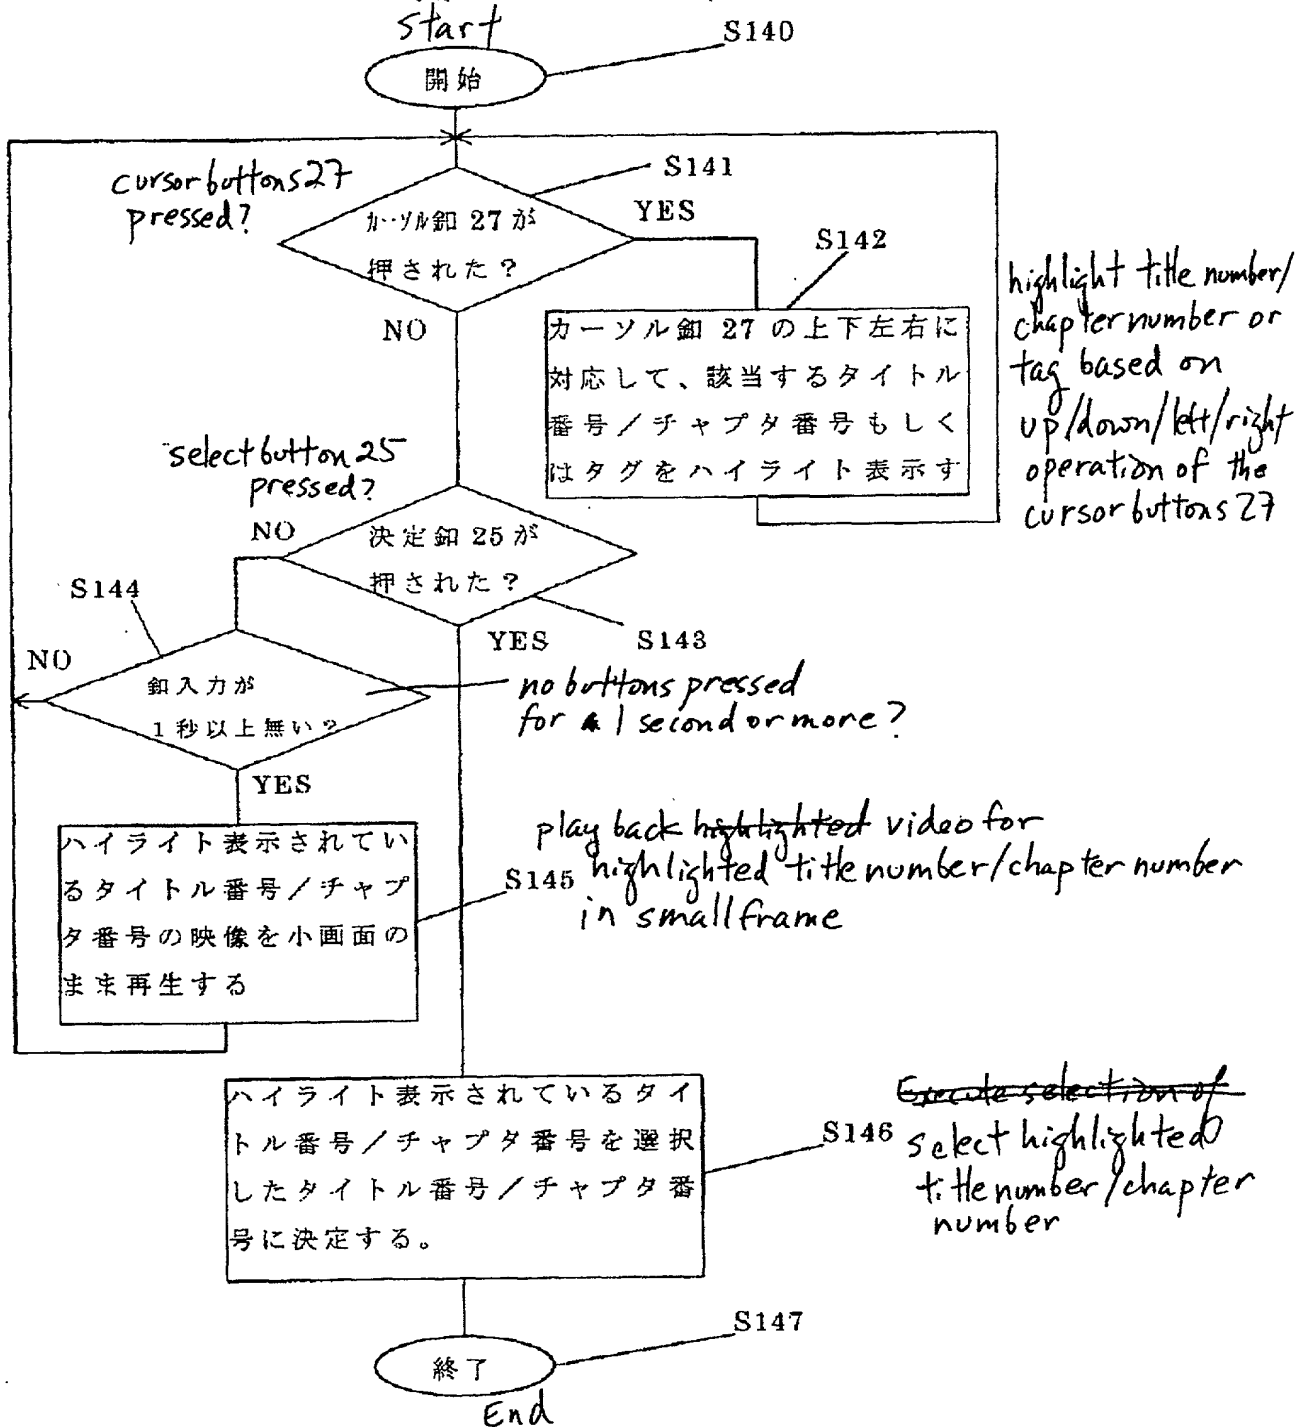 start
S140
開始
cursor buttons 27
pressed?
S141
カーソル釦 27 が
押された？
YES
NO
S142
カーソル釦 27 の上下左右に
対応して、該当するタイトル
番号／チャプタ番号もしく
はタグをハイライト表示す
highlight title number/
chapter number or
tag based on
up/down/left/right
operation of the
cursor buttons 27
select button 25
pressed?
決定釦 25 が
押された？
NO
YES
S143
S144
NO
釦入力が
1秒以上無い？
no buttons pressed
for 1 second or more?
YES
ハイライト表示されてい
るタイトル番号／チャプ
タ番号の映像を小画面の
まま再生する
S145
play back highlighted video for
highlighted title number/chapter number
in small frame
ハイライト表示されているタイ
トル番号／チャプタ番号を選択
したタイトル番号／チャプタ番
号に決定する。
S146
Execute selection of
select highlighted
title number/chapter
number
S147
終了
End